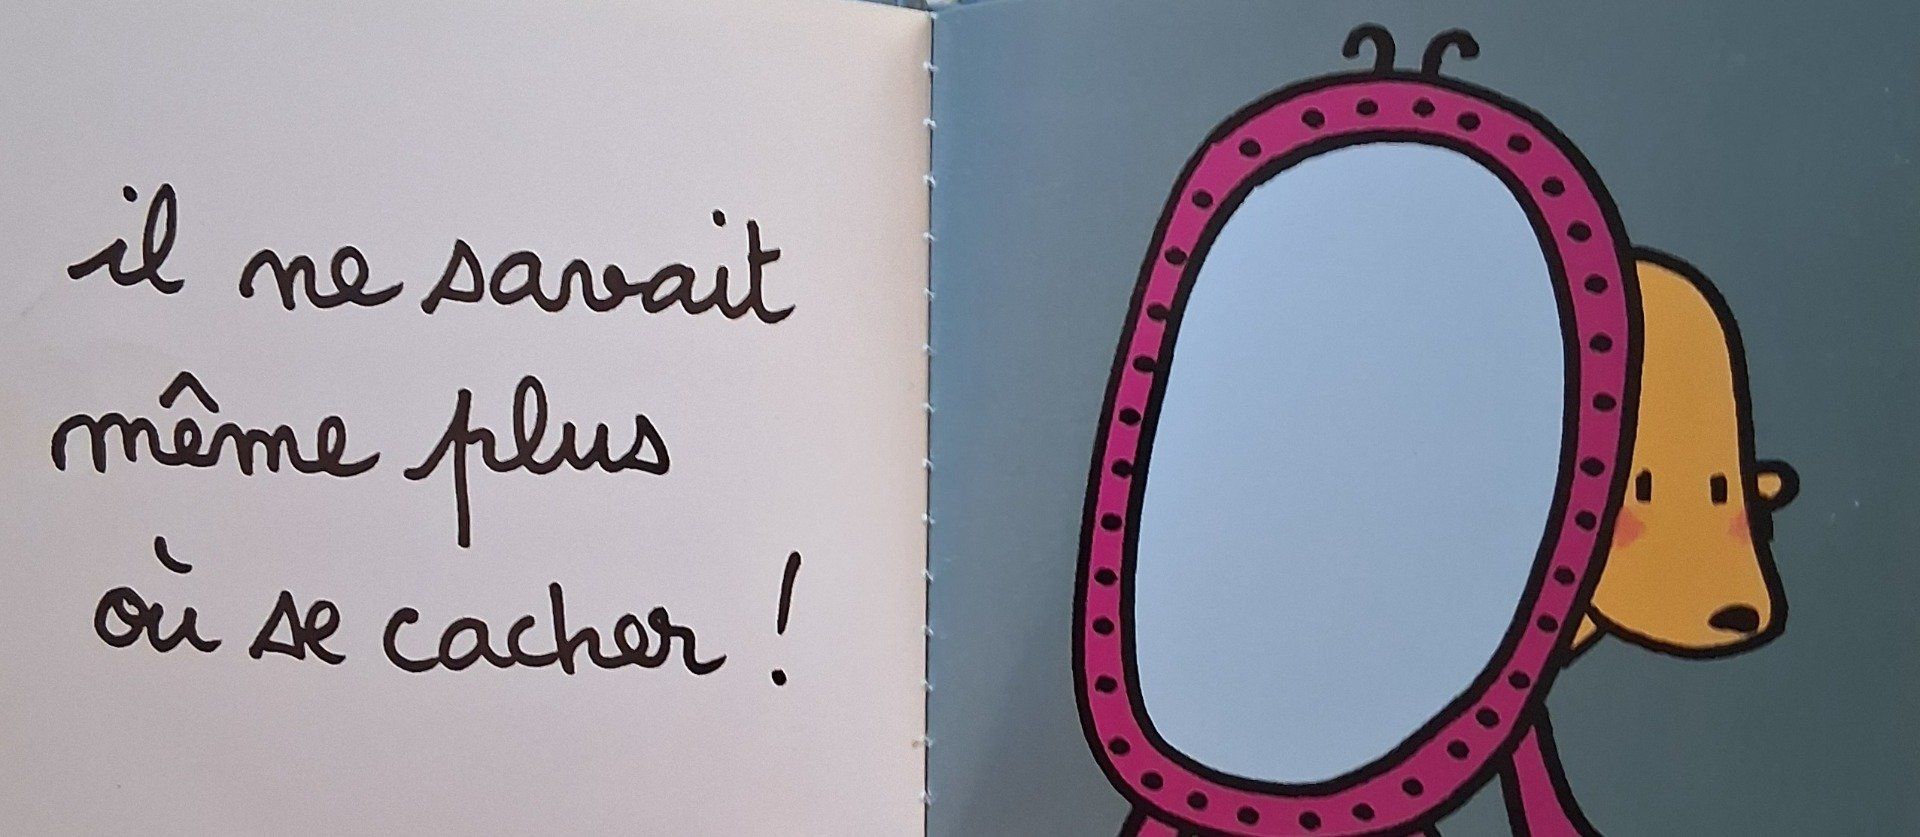 il ne savait
même plus
où se cacher !